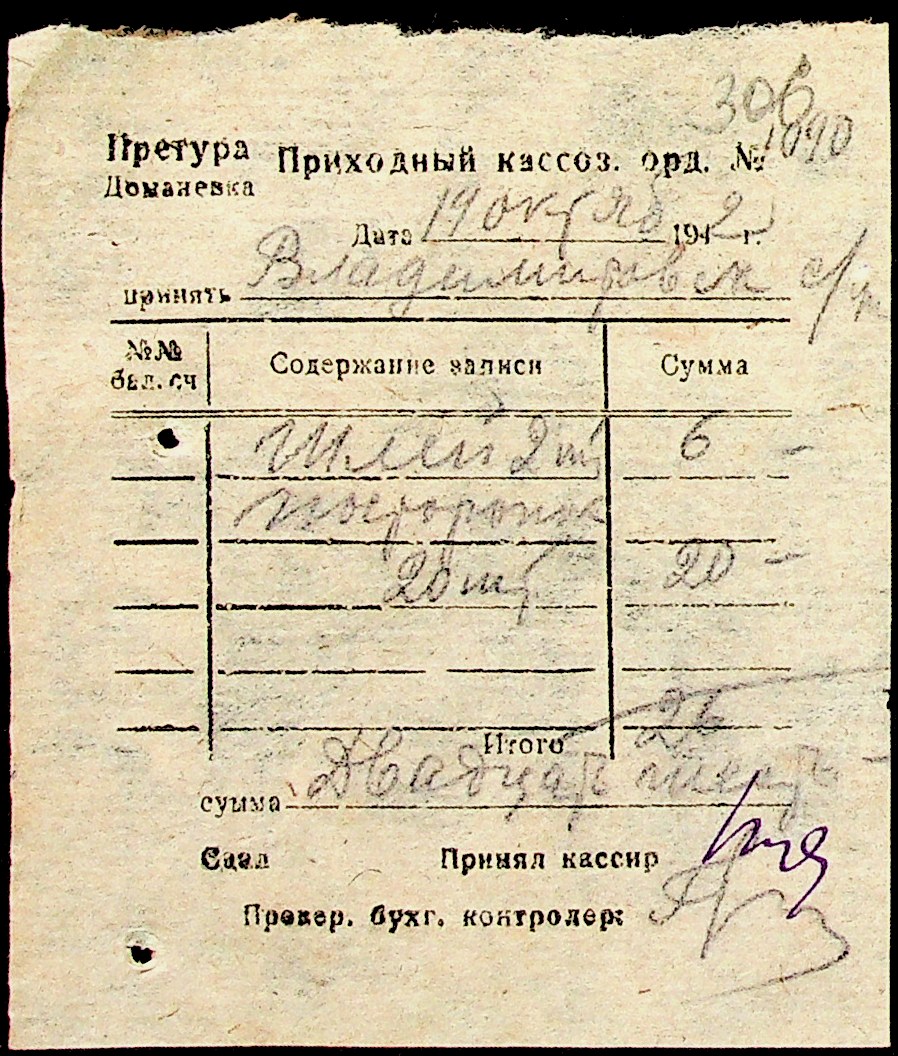 306
Претура Приходный кассов. орд. № 1090
Доманевка
Дата 19 октяб 1942 г.
принять Владимировск с/у
№№ бал. сч Содержание записи Сумма
Шлей 2 шт 6 -
посторонок
20 шт 20 -
Итого 26
сумма Двадцать шесть -
Сдал Принял кассир
Провер. бухг. контролер: